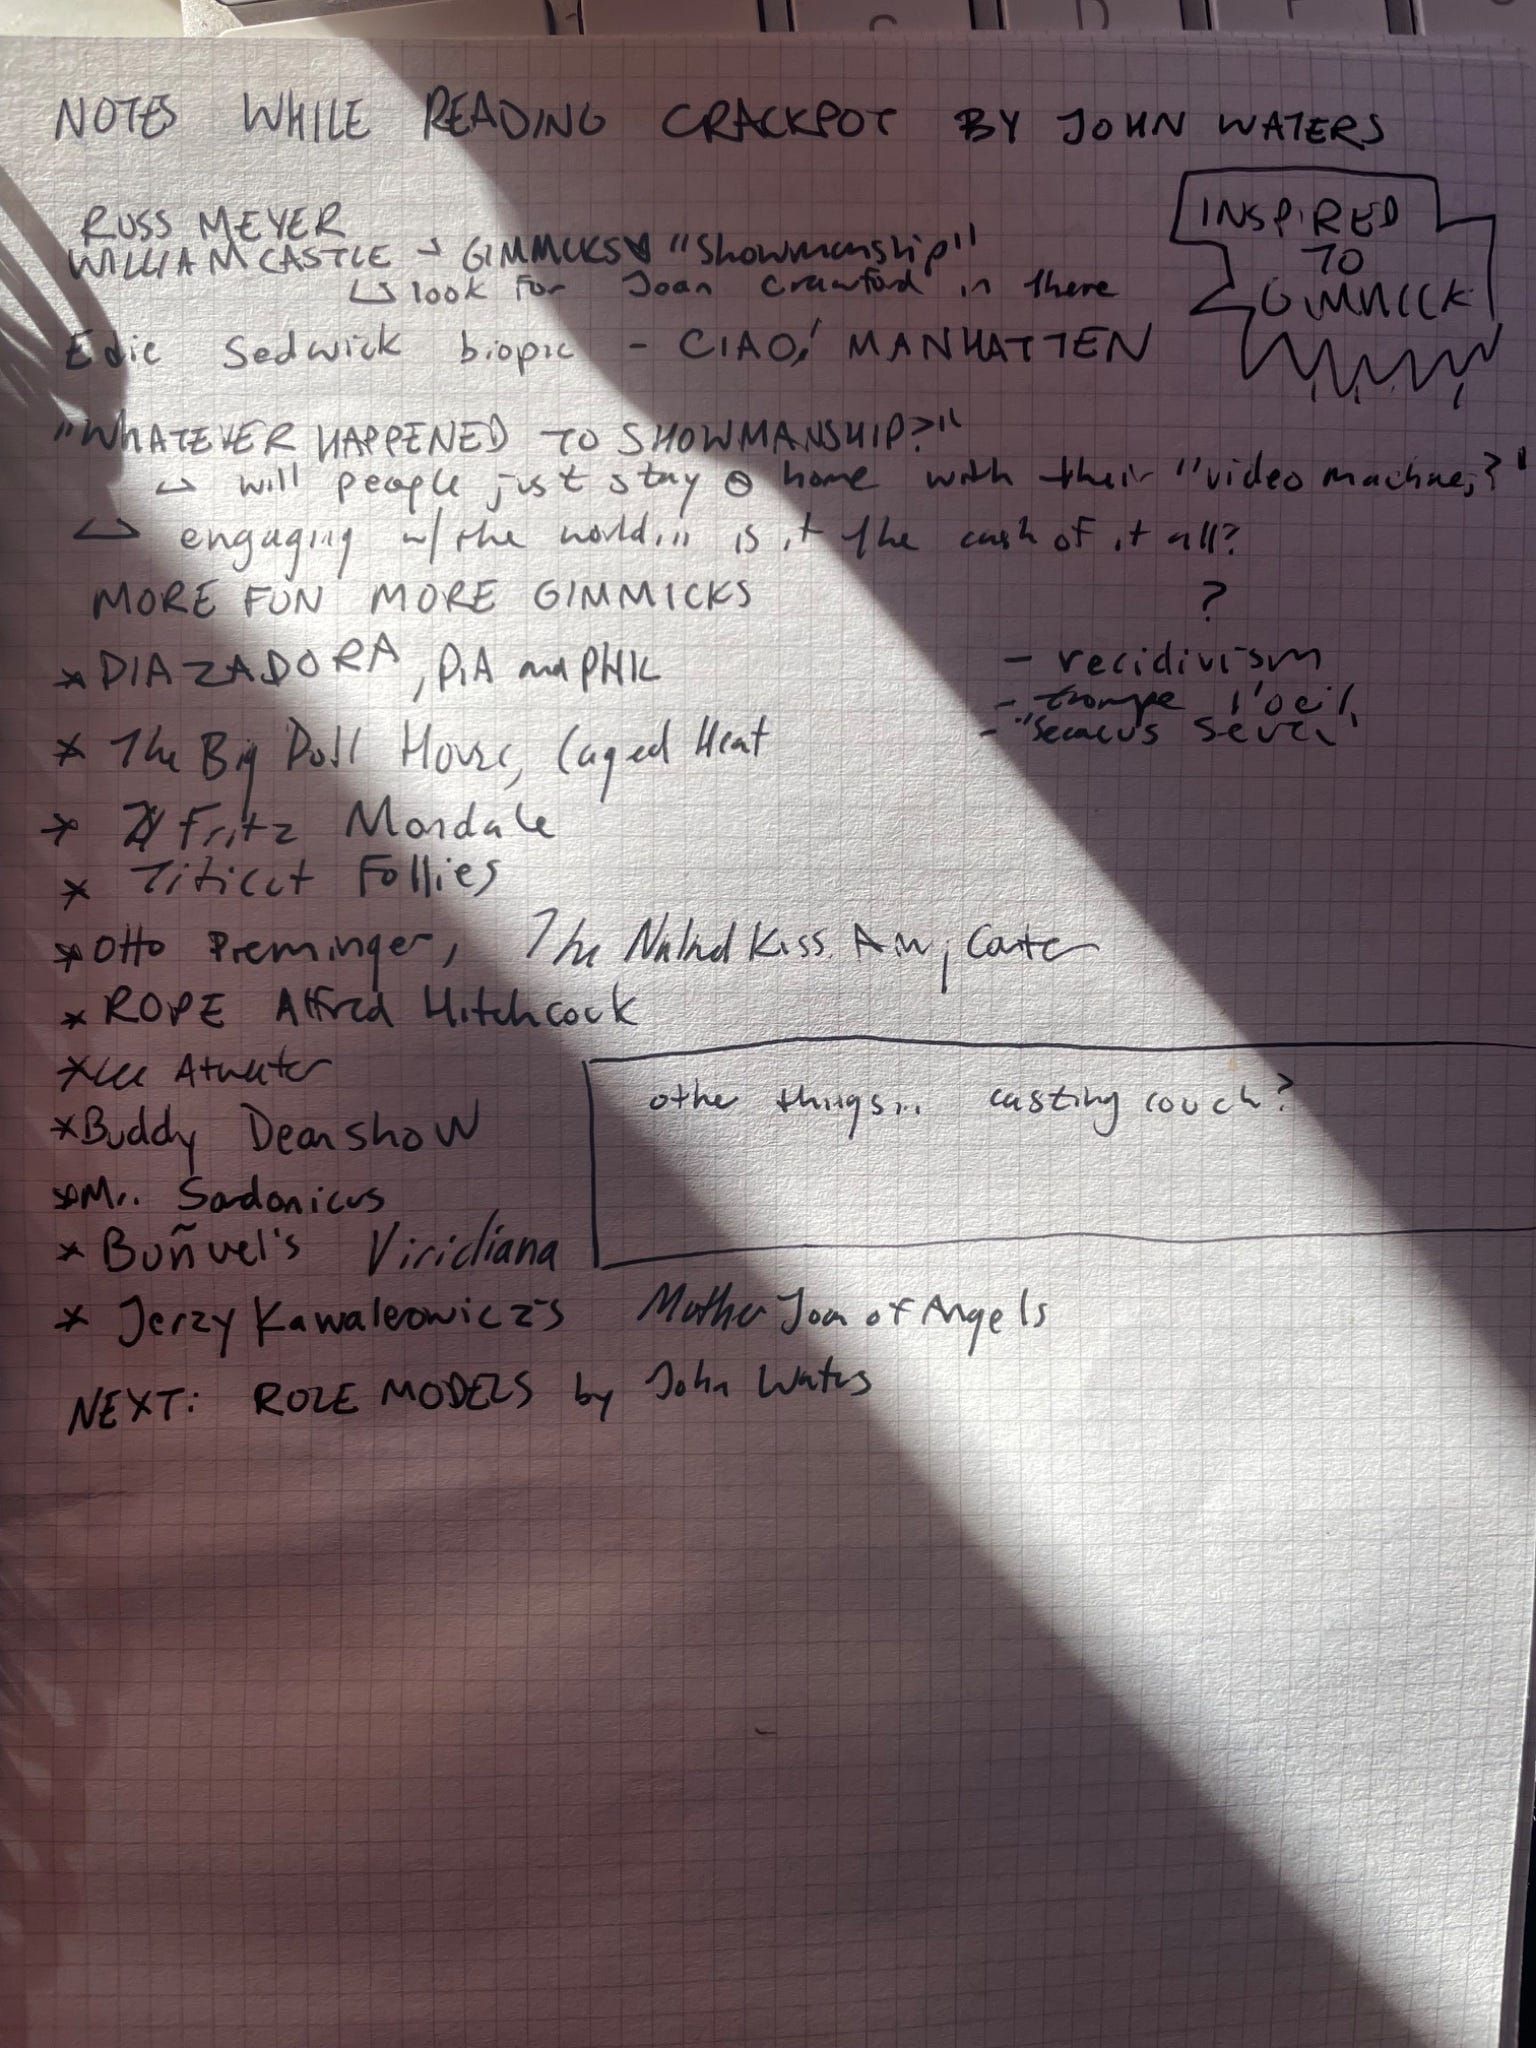 NOTES WHILE READING CRACKPOT BY JOHN WATERS
RUSS MEYER
WILLIAM CASTLE → GIMMICKS "Showmanship"
↳ look for Joan Crawford in there
INSPIRED
TO
GIMMICK
Edie Sedwick biopic - CIAO! MANHATTEN
"WHATEVER HAPPENED TO SHOWMANSHIP?"
↳ will people just stay @ home with their "video machines?"
↳ engaging w/ the world... is it the cash of it all?
MORE FUN MORE GIMMICKS
?
- recidivism
- trompe l'oeil
- "Secacus Seven"
* PIA ZADORA, PIA and PHIL
* The Big Doll House, Caged Heat
* Fritz Mondale
* Titicut Follies
* Otto Preminger, The Naked Kiss. Amy Carter
* ROPE Alfred Hitchcock
* Lee Atwater
* Buddy Dean show
* Mr. Sardonicus
* Buñuel's Viridiana
* Jerzy Kawalerowicz's Mother Joan of Angels
other things... casting couch?
NEXT: ROLE MODELS by John Waters